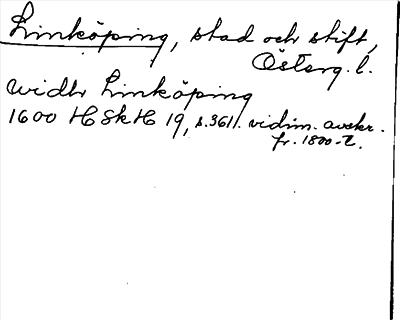 Linköping, stad och stift,
Österg. l.
widh Linköping
1600 HSkH 19, s. 361. vidim. avskr.
fr. 1800-t.